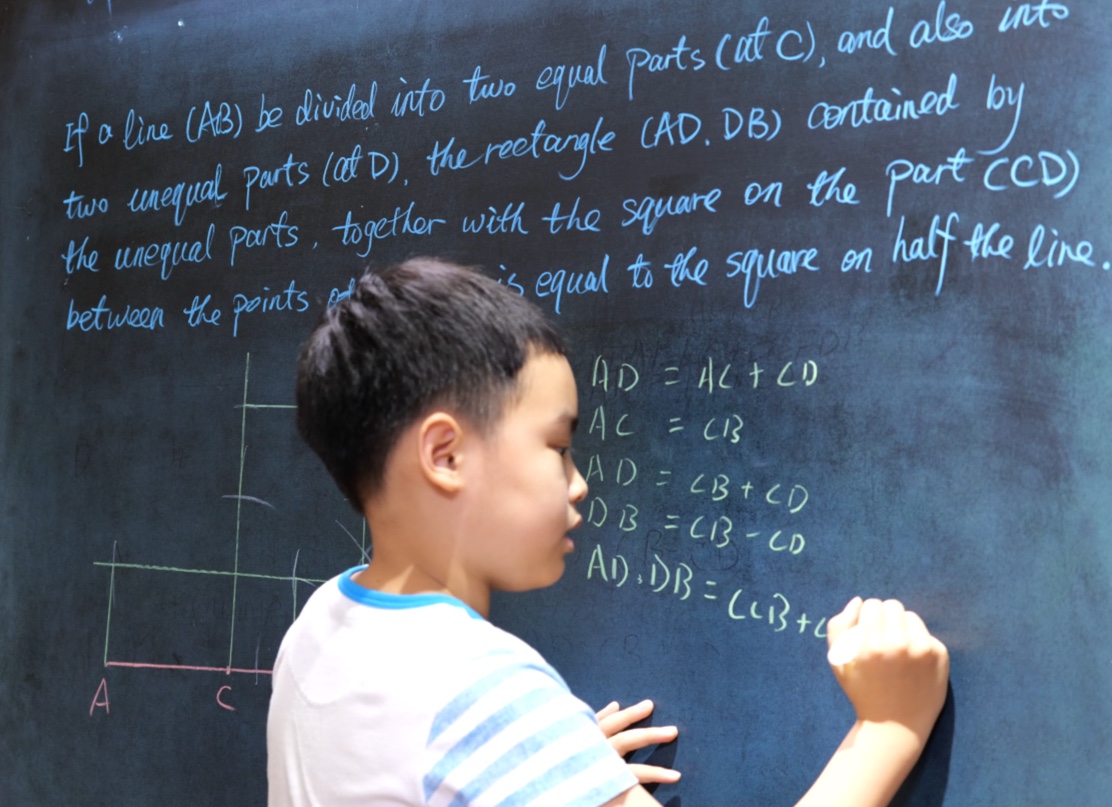 If a line (AB) be divided into two equal parts (at C), and also into
two unequal parts (at D), the rectangle (AD.DB) contained by
the unequal parts, together with the square on the part (CD)
between the points is equal to the square on half the line.
AD = AC + CD
AC = CB
AD = CB + CD
DB = CB - CD
AD.DB = (CB + C
A C